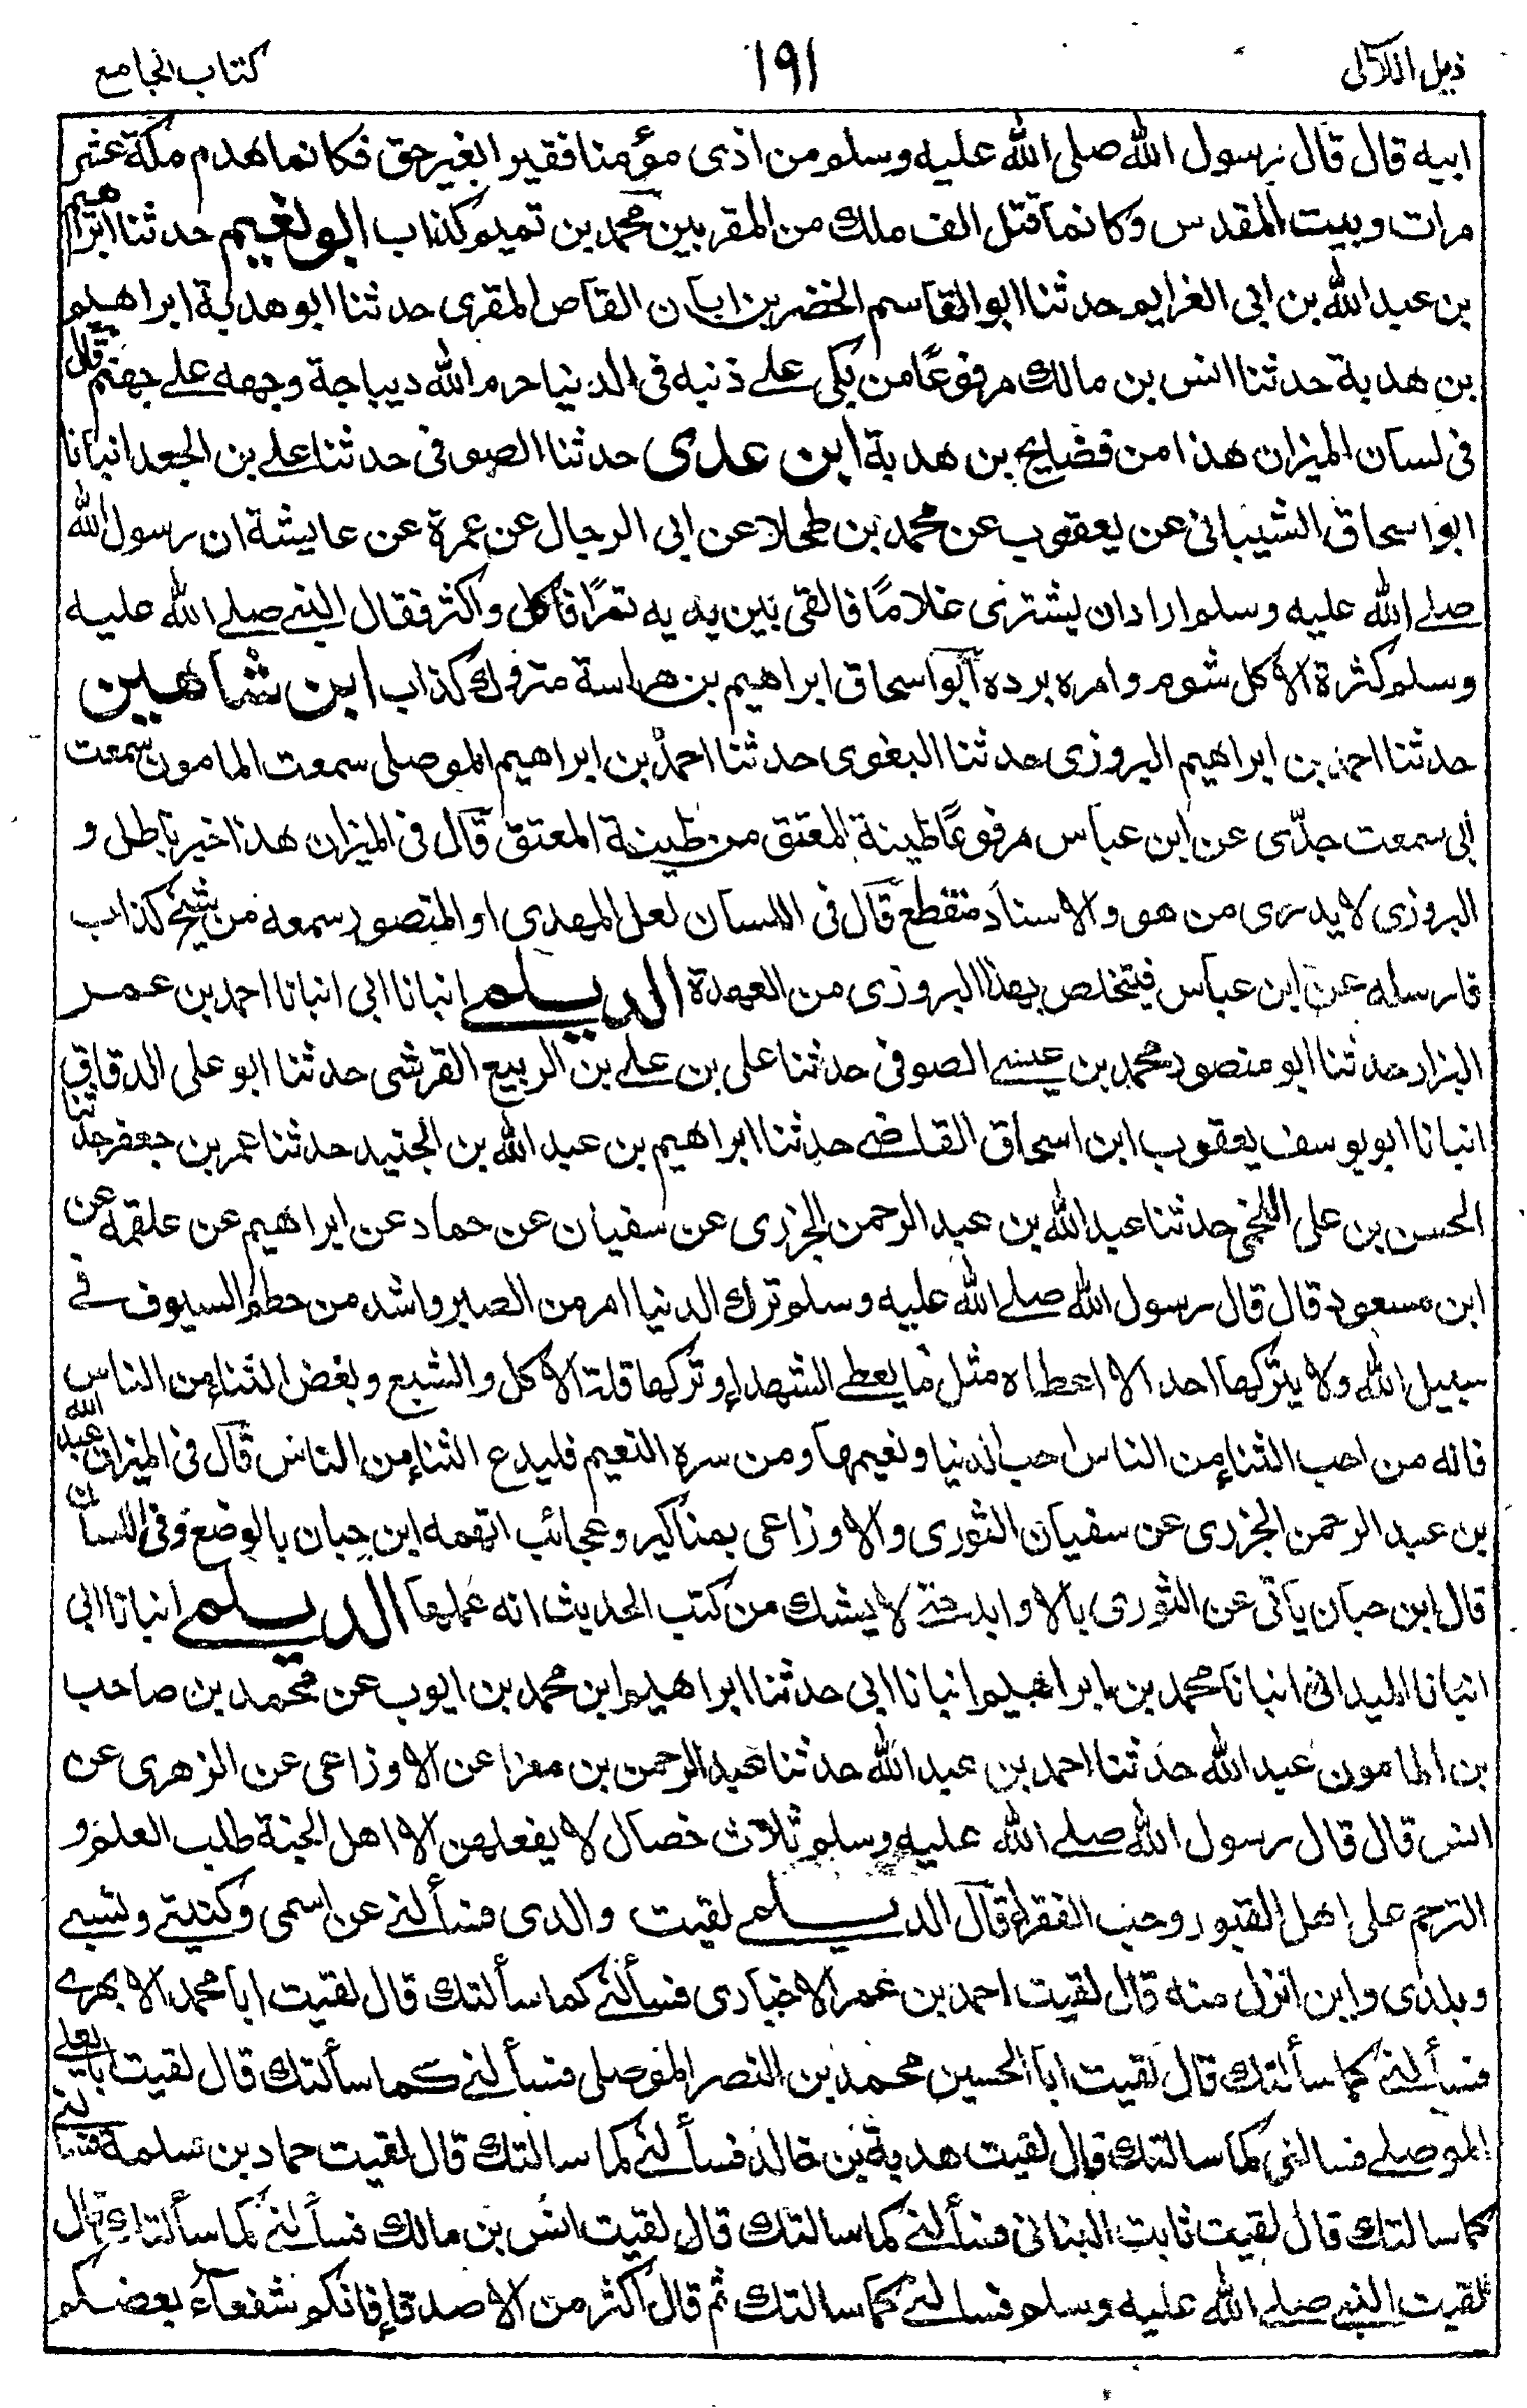 ذيل اللآلى
١٩١
كتاب الجامع
ابيه قال قال رسول الله صلى الله عليه وسلم من اذى مؤمنا فقيرا بغير حق فكانما هدم مكة عشر
مرات و بيت المقدس وكانما قتل الف ملك من المقربين محمد بن تميم كذاب ابو نعيم حدثنا ابراهيم
بن عبد الله بن ابى العزايم حدثنا ابو القاسم الخضر بن ابان القاص المقرى حدثنا ابو هدبة ابراهيم
بن هدبة حدثنا انس بن مالك مرفوعًا من بكى على ذنبه فى الدنيا حرم الله ديباجة وجهه على جهنم قال
فى لسان الميزان هذا من فضايح بن هدبة ابن عدى حدثنا الصوفى حدثنا على بن الجعد انبانا
ابو اسحاق الشيبانى عن يعقوب عن محمد بن طحلا عن ابى الرجال عن عمرة عن عايشة ان رسول الله
صلى الله عليه وسلم اراد ان يشترى غلامًا فالقى بين يديه تمرًا فاكل واكثر فقال النبى صلى الله عليه
وسلم كثرة الاكل شوم وامره برده ابو اسحاق ابراهيم بن هراسة متروك كذاب ابن شاهين
حدثنا احمد بن ابراهيم البروزى حدثنا البغوى حدثنا احمد بن ابراهيم الموصلى سمعت المامون سمعت
ابى سمعت جدّى عن ابن عباس مرفوعًا طينة المعتق من طينة المعتق قال فى الميزان هذا خبر باطل و
البروزى لا يدرى من هو والاسناد منقطع قال فى اللسان لعل المهدى او المنصور سمعه من شيخ كذاب
فارسله عن ابن عباس فيتخلص بهذا البروزى من العهدة الديلمى انبانا ابى انبانا احمد بن عمر
البزار حدثنا ابو منصور محمد بن عيسى الصوفى حدثنا على بن على بن الربيع القرشى حدثنا ابو على الدقاق
انبانا ابو يوسف يعقوب ابن اسحاق القاضى حدثنا ابراهيم بن عبد الله بن الجنيد حدثنا عمر بن جعفر حدثنا
الحسن بن على اللخمى حدثنا عبد الله بن عبد الرحمن الجزرى عن سفيان عن حماد عن ابراهيم عن علقمه عن
ابن مسعود قال قال رسول الله صلى الله عليه وسلم ترك الدنيا امر من الصبر واشد من حطم السيوف فى
سبيل الله ولا يتركها احد الا اعطاه مثل ما يعطى الشهداء وتركها قلة الاكل والشبع وبغض الثناء من الناس
فانه من احب الثناء من الناس احب الدنيا ونعيمها ومن سره النعيم فليدع الثناء من الناس قال فى الميزان عبد الله
بن عبد الرحمن الجزرى عن سفيان الثورى والاوزاعى بمناكير وعجائب اتهمه ابن حبان بالوضع وفى اللسان
قال ابن حبان ياتى عن الثورى بالاوابد حتى لا يشك من كتب الحديث انه عملها الديلمى انبانا ابى
انبانا الميدانى انبانا محمد بن ابراهيم انبانا ابى حدثنا ابراهيم ابن محمد بن ايوب عن محمد بن صاحب
بن المامون عبد الله حدثنا احمد بن عبد الله حدثنا عبد الرحمن بن مغرا عن الاوزاعى عن الزهرى عن
انس قال قال رسول الله صلى الله عليه وسلم ثلاث خصال لا يفعلهن الا اهل الجنة طلب العلم و
الترحم على اهل القبور وحب الفقراء قال الديلمى لقيت والدى فسألنى عن اسمى وكنيتى ونسبى
وبلدى واين انزل منه قال لقيت احمد بن عمر الاخبارى فسألنى كما سالتك قال لقيت ابا محمد الابهرى
فسألنى كما سألتك قال لقيت ابا الحسين محمد بن النصر الموصلى فسألنى كما سألتك قال لقيت ابا يعلى
الموصلى فسالنى كما سالتك قال لقيت هدبة بن خالد فسألنى كما سالتك قال لقيت حماد بن سلمة فسالنى
كما سالتك قال لقيت ثابت البنانى فسألنى كما سالتك قال لقيت انس بن مالك فسألنى كما سألتك قال
لقيت النبى صلى الله عليه وسلم فسالنى كما سالتك ثم قال اكثر من الاصدقاء فانكم شفعاء بعضكم